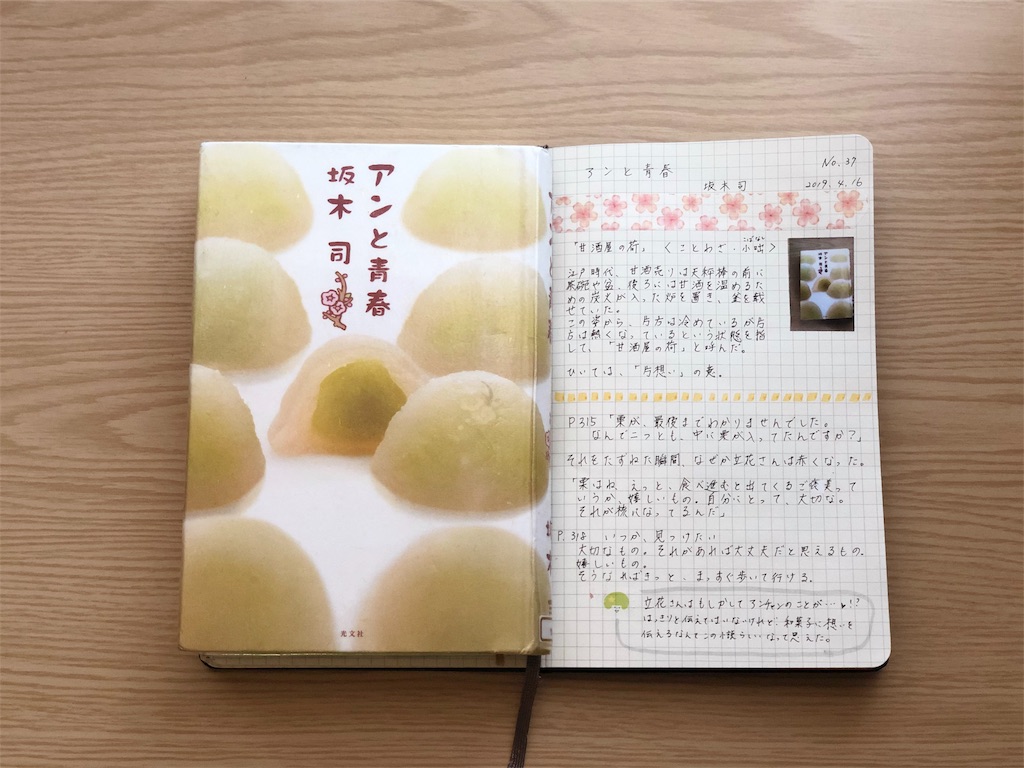 アンと青春
坂木 司
光文社
アンと青春
No.37
坂木司
2019.4.16
「甘酒屋の荷」〈ことわざ・小咄〉
こばなし
江戸時代、甘酒売りは天秤棒の前に
茶碗や盆、後ろには甘酒を温めるた
めの炭火が入った炉を置き、釜を載
せていた。
この姿から、片方は冷めているが片
方は熱くなっているという状態を指
して、「甘酒屋の荷」と呼んだ。
ひいては、「片想い」の意。
P.315「栗が、最後までわかりませんでした。
なんで二つとも、中に栗が入ってたんですか?」
それをたずねた瞬間、なぜか立花さんは赤くなった。
「栗はね、えっと、食べ進むと出てくるご褒美って
いうか、嬉しいもの。自分にとって、大切な。
それが核になってるんだ」
P.318 いつか、見つけたい
大切なもの。それがあれば大丈夫だと思えるもの。
嬉しいもの。
そうなればきっと、まっすぐ歩いて行ける。
立花さんはもしかしてアンチャンのことが…♥!?
はっきりと伝えてはいないけれど、和菓子に想いを
伝えるなんてこの人らしいなって思えた。